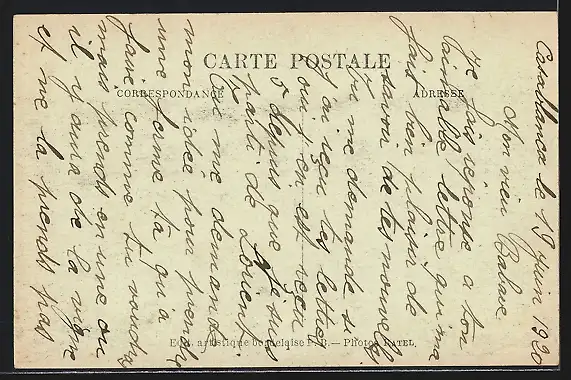 CARTE POSTALE
CORRESPONDANCE
ADRESSE
Casablanca le 19 juin 1920
Mon vieu
Je fais réponse a ton
aimable lettre qui me
fais bien plaisir de
savoir de tes nouvelles
Tu me demande si
j'ai reçu tes lettres
oui j'en est reçu
depuis que je suis
parti de Lorient
Tu me demande
mon idée pour prendre
une ferme ta qu'a
faire comme tu voudra
mais prends en une ou
il y aura de la vigne
et ne la prends pas
Edit. artistique bordelaise P. B. — Photos RATEL.